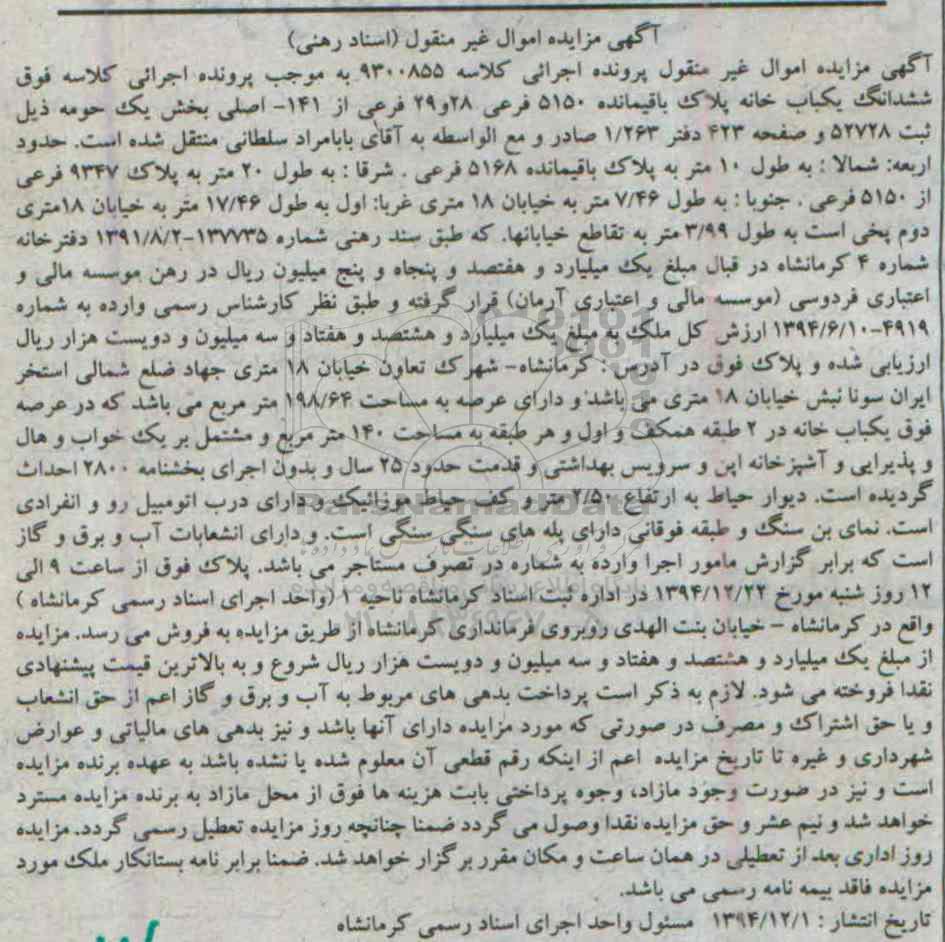 آگهی مزایده اموال غیر منقول (اسناد رهنی)
آگهی مزایده اموال غیر منقول پرونده اجرائی کلاسه ۹۳۰۰۸۵۵ به موجب پرونده اجرائی کلاسه فوق
ششدانگ یکباب خانه پلاک باقیمانده ۵۱۵۰ فرعی ۲۸و۲۹ فرعی از ۱۴۱- اصلی بخش یک حومه ذیل
ثبت ۵۲۷۲۸ و صفحه ۴۲۳ دفتر ۱/۲۶۳ صادر و مع الواسطه به آقای بابامراد سلطانی منتقل شده است. حدود
اربعه: شمالا : به طول ۱۰ متر به پلاک باقیمانده ۵۱۶۸ فرعی . شرقا : به طول ۲۰ متر به پلاک ۹۳۴۷ فرعی
از ۵۱۵۰ فرعی . جنوبا : به طول ۷/۴۶ متر به خیابان ۱۸ متری غربا: اول به طول ۱۷/۴۶ متر به خیابان ۱۸متری
دوم پخی است به طول ۳/۹۹ متر به تقاطع خیابانها. که طبق سند رهنی شماره ۱۳۷۷۳۵-۱۳۹۱/۸/۲ دفترخانه
شماره ۴ کرمانشاه در قبال مبلغ یک میلیارد و هفتصد و پنجاه و پنج میلیون ریال در رهن موسسه مالی و
اعتباری فردوسی (موسسه مالی و اعتباری آرمان) قرار گرفته و طبق نظر کارشناس رسمی وارده به شماره
۴۹۱۹-۱۳۹۴/۶/۱۰ ارزش کل ملک به مبلغ یک میلیارد و هشتصد و هفتاد و سه میلیون و دویست هزار ریال
ارزیابی شده و پلاک فوق در آدرس : کرمانشاه- شهرک تعاون خیابان ۱۸ متری جهاد ضلع شمالی استخر
ایران سونا نبش خیابان ۱۸ متری می باشد و دارای عرصه به مساحت ۱۹۸/۶۴ متر مربع می باشد که در عرصه
فوق یکباب خانه در ۲ طبقه همکف و اول و هر طبقه به مساحت ۱۴۰ متر مربع و مشتمل بر یک خواب و هال
و پذیرایی و آشپزخانه اپن و سرویس بهداشتی و قدمت حدود ۲۵ سال و بدون اجرای بخشنامه ۲۸۰۰ احداث
گردیده است. دیوار حیاط به ارتفاع ۲/۵۰ متر و کف حیاط موزائیک و دارای درب اتومبیل رو و انفرادی
است. نمای بن سنگ و طبقه فوقانی دارای پله های سنگی سنگی است. و دارای انشعابات آب و برق و گاز
است که برابر گزارش مامور اجرا وارده به شماره در تصرف مستاجر می باشد. پلاک فوق از ساعت ۹ الی
۱۲ روز شنبه مورخ ۱۳۹۴/۱۲/۲۲ در اداره ثبت اسناد کرمانشاه ناحیه ۱ (واحد اجرای اسناد رسمی کرمانشاه )
واقع در کرمانشاه - خیابان بنت الهدی روبروی فرمانداری کرمانشاه از طریق مزایده به فروش می رسد. مزایده
از مبلغ یک میلیارد و هشتصد و هفتاد و سه میلیون و دویست هزار ریال شروع و به بالاترین قیمت پیشنهادی
نقدا فروخته می شود. لازم به ذکر است پرداخت بدهی های مربوط به آب و برق و گاز اعم از حق انشعاب
و یا حق اشتراک و مصرف در صورتی که مورد مزایده دارای آنها باشد و نیز بدهی های مالیاتی و عوارض
شهرداری و غیره تا تاریخ مزایده اعم از اینکه رقم قطعی آن معلوم شده یا نشده باشد به عهده برنده مزایده
است و نیز در صورت وجود مازاد، وجوه پرداختی بابت هزینه ها فوق از محل مازاد به برنده مزایده مسترد
خواهد شد و نیم عشر و حق مزایده نقدا وصول می گردد ضمنا چنانچه روز مزایده تعطیل رسمی گردد. مزایده
روز اداری بعد از تعطیلی در همان ساعت و مکان مقرر برگزار خواهد شد. ضمنا برابر نامه بستانکار ملک مورد
مزایده فاقد بیمه نامه رسمی می باشد.
تاریخ انتشار : ۱۳۹۴/۱۲/۱ مسئول واحد اجرای اسناد رسمی کرمانشاه
ParsNamadData